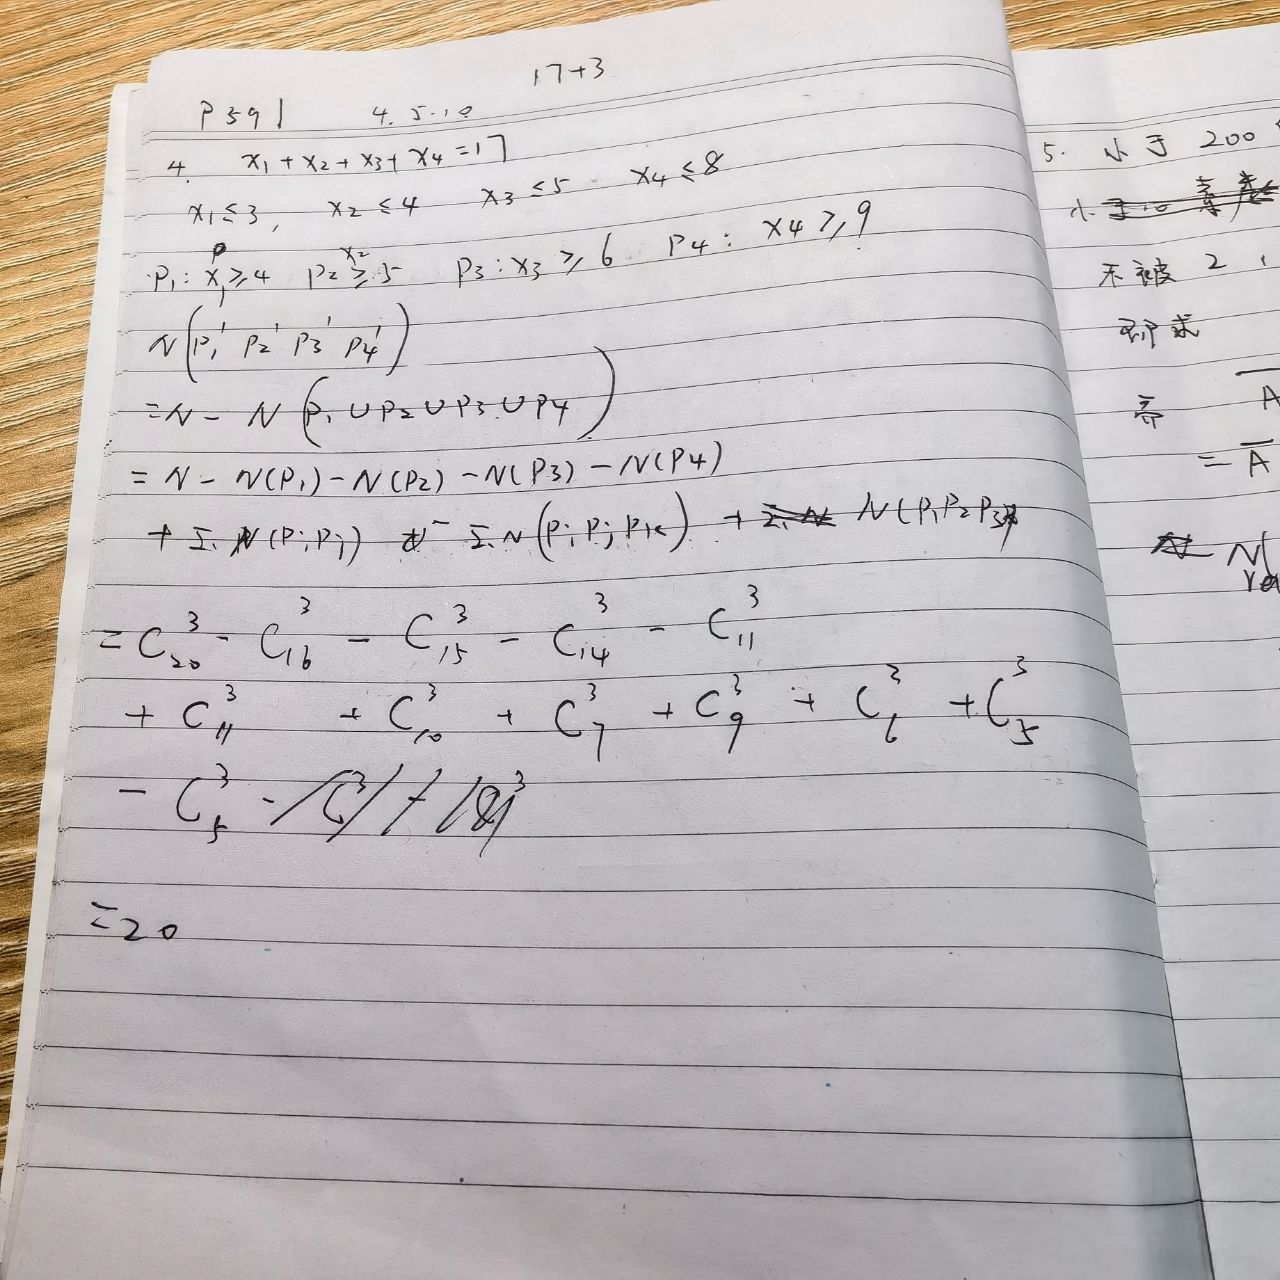 17+3
P 591 4. 5.10
4. x₁ + x₂ + x₃ + x₄ = 17
x₁ ≤ 3, x₂ ≤ 4 x₃ ≤ 5 x₄ ≤ 8
P₁: x₁ ≥ 4 P₂ x₂ ≥ 5 P₃: x₃ ≥ 6 P₄: x₄ ≥ 9
N(P₁' P₂' P₃' P₄')
= N - N(P₁ ∪ P₂ ∪ P₃ ∪ P₄)
= N - N(P₁) - N(P₂) - N(P₃) - N(P₄)
+ Σ N(PᵢPⱼ) - Σ N(PᵢPⱼPₖ) + N(P₁P₂P₃
= C₂₀³ - C₁₆³ - C₁₅³ - C₁₄³ - C₁₁³
+ C₁₁³ + C₁₀³ + C₇³ + C₉³ + C₆³ + C₅³
- C₅³
= 20
5. 小于 200
不被 2,
即求
A
= A
N(